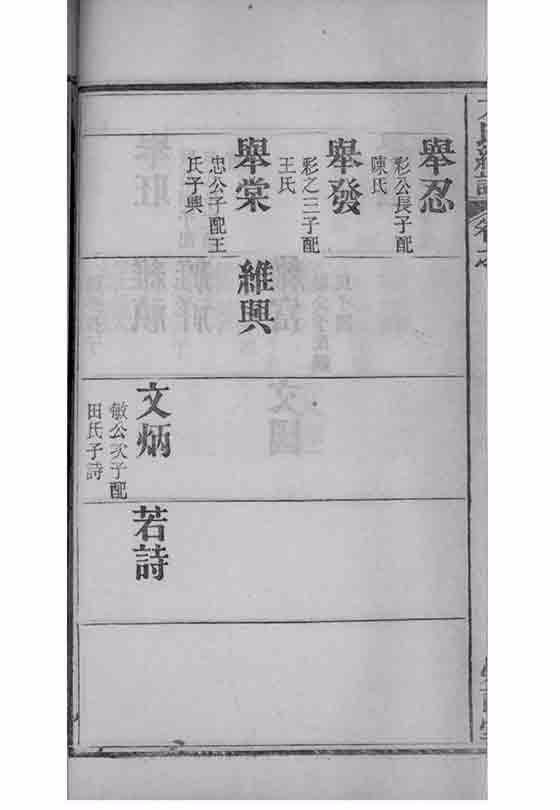 舉忍
彩公長子配
陳氏
舉發
彩之三子配
王氏
舉棠
忠公子配王
氏子興
維興
文炳
敏公次子配
田氏子詩
若詩